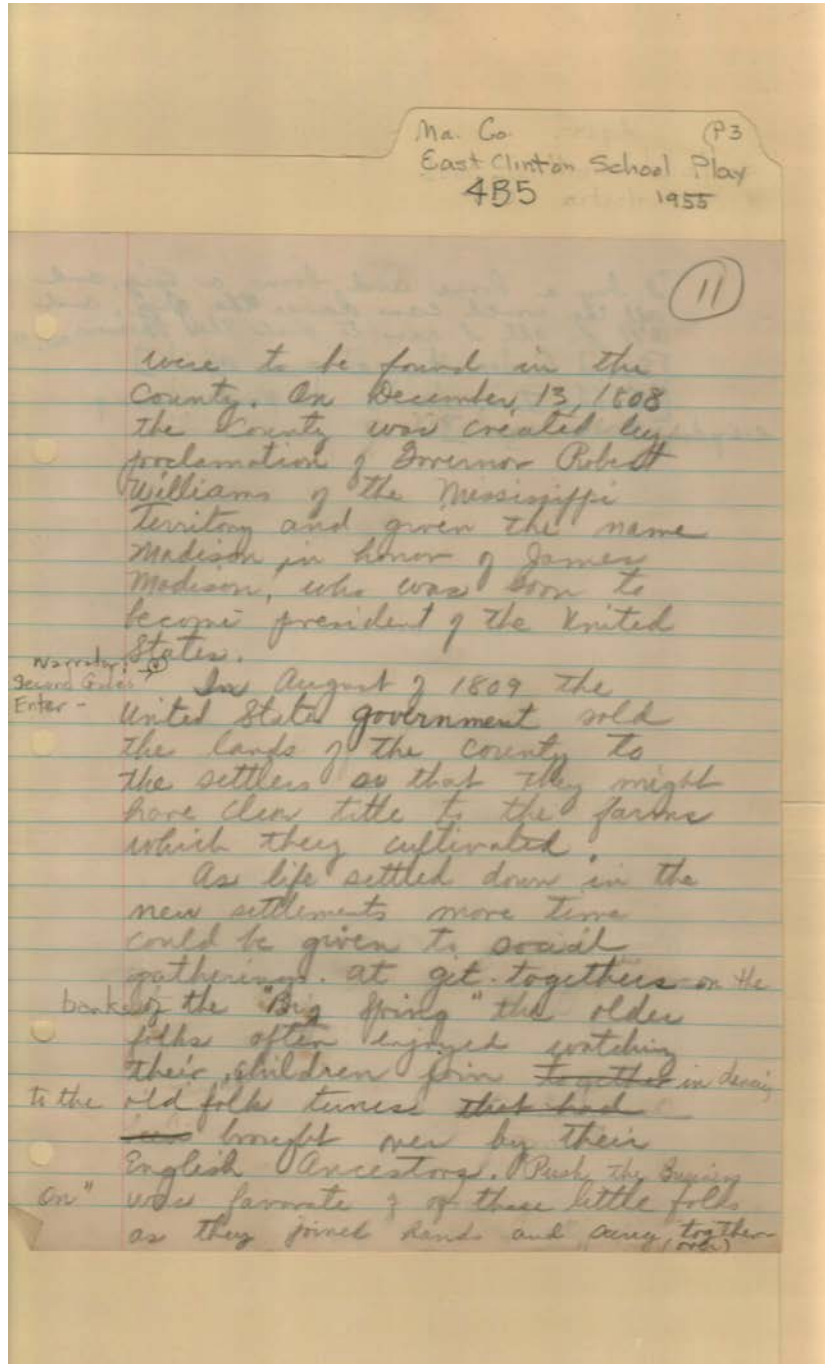 Ma. Co. P3
East Clinton School Play
4B5 1955
11
were to be found in the
County. On December, 13, 1808
the County was created by
proclamation of Governor Robert
Williams of the Mississippi
Territory and given the name
Madison, in honor of James
Madison, who was soon to
become president of the United
States.
Narrator:
Second Grades
Enter -
In August of 1809 the
United States government sold
the lands of the county to
the settlers so that they might
have clear title to the farms
which they cultivated.
As life settled down in the
new settlements more time
could be given to social
gatherings. at git-togethers on the
banks of the "Big Spring" the older
folks often enjoyed watching
their children join together in
to the old folk tunes that had
brought over by their
English Ancestors. "Push the Business
On" was favorate of of these little folks
as they joined hands and sang together
(over)